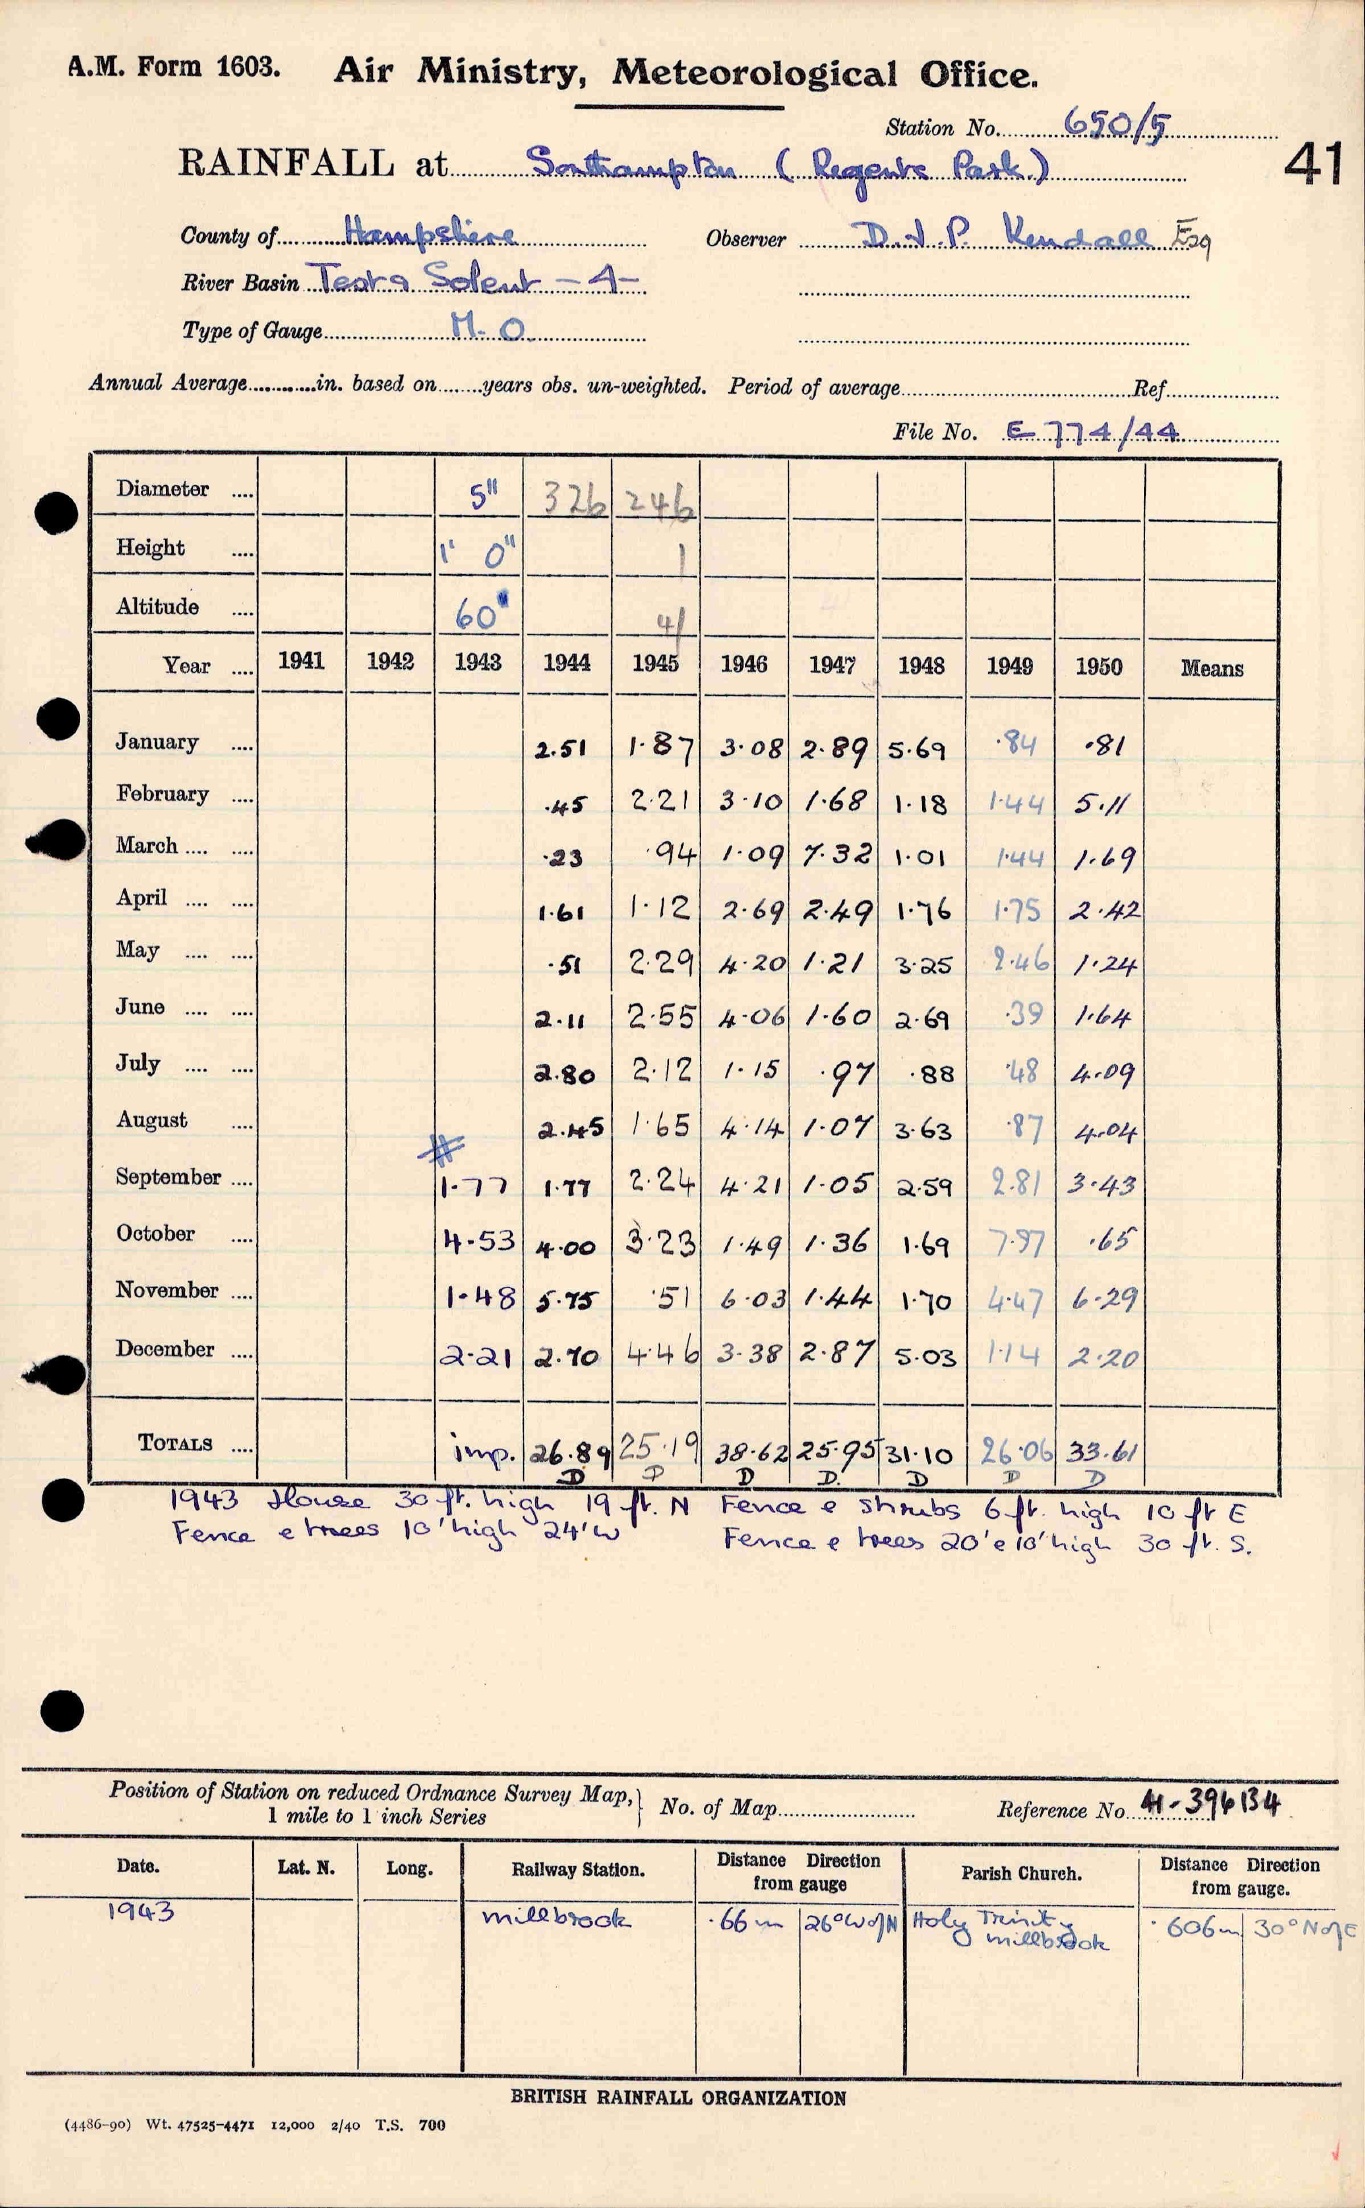 A.M. Form 1603. Air Ministry, Meteorological Office.
Station No. 650/5
41
RAINFALL at Southampton (Regents Park.)
County of Hampshire Observer D.J.P. Kendall Esq
River Basin Test & Solent - A -
Type of Gauge M.O.
Annual Average in. based on years obs. un-weighted. Period of average Ref
File No. E 774/44
Diameter 5" 326 246
Height 1' 0" 1
Altitude 60' 41
Year 1941 1942 1943 1944 1945 1946 1947 1948 1949 1950 Means
January 2.51 1.87 3.08 2.89 5.69 .84 .81
February .45 2.21 3.10 1.68 1.18 1.44 5.11
March .23 .94 1.09 7.32 1.01 1.44 1.69
April 1.61 1.12 2.69 2.49 1.76 1.75 2.42
May .51 2.29 4.20 1.21 3.25 2.46 1.24
June 2.11 2.55 4.06 1.60 2.69 .39 1.64
July 2.80 2.12 1.15 .97 .88 .48 4.09
August 2.45 1.65 4.14 1.07 3.63 .87 4.04
September # 1.77 1.77 2.24 4.21 1.05 2.59 2.81 3.43
October 4.53 4.00 3.23 1.49 1.36 1.69 7.97 .65
November 1.48 5.75 .51 6.03 1.44 1.70 4.47 6.29
December 2.21 2.70 4.46 3.38 2.87 5.03 1.14 2.20
TOTALS imp. 26.89 25.19 38.62 25.95 31.10 26.06 33.61
D D D D. D D D
1943 House 30 ft. high 19 ft. N Fence & shrubs 6 ft. high 10 ft E
Fence & trees 10' high 24' W Fence & trees 20' & 10' high 30 ft. S.
Position of Station on reduced Ordnance Survey Map, 1 mile to 1 inch Series } No. of Map Reference No. 41-396134
Date. Lat. N. Long. Railway Station. Distance from gauge Direction Parish Church. Distance from gauge. Direction
1943 Millbrook .66 m 26° W of N Holy Trinity Millbrook .606 m 30° N of E
BRITISH RAINFALL ORGANIZATION
(4486-90) Wt. 47525-4471 12,000 2/40 T.S. 700